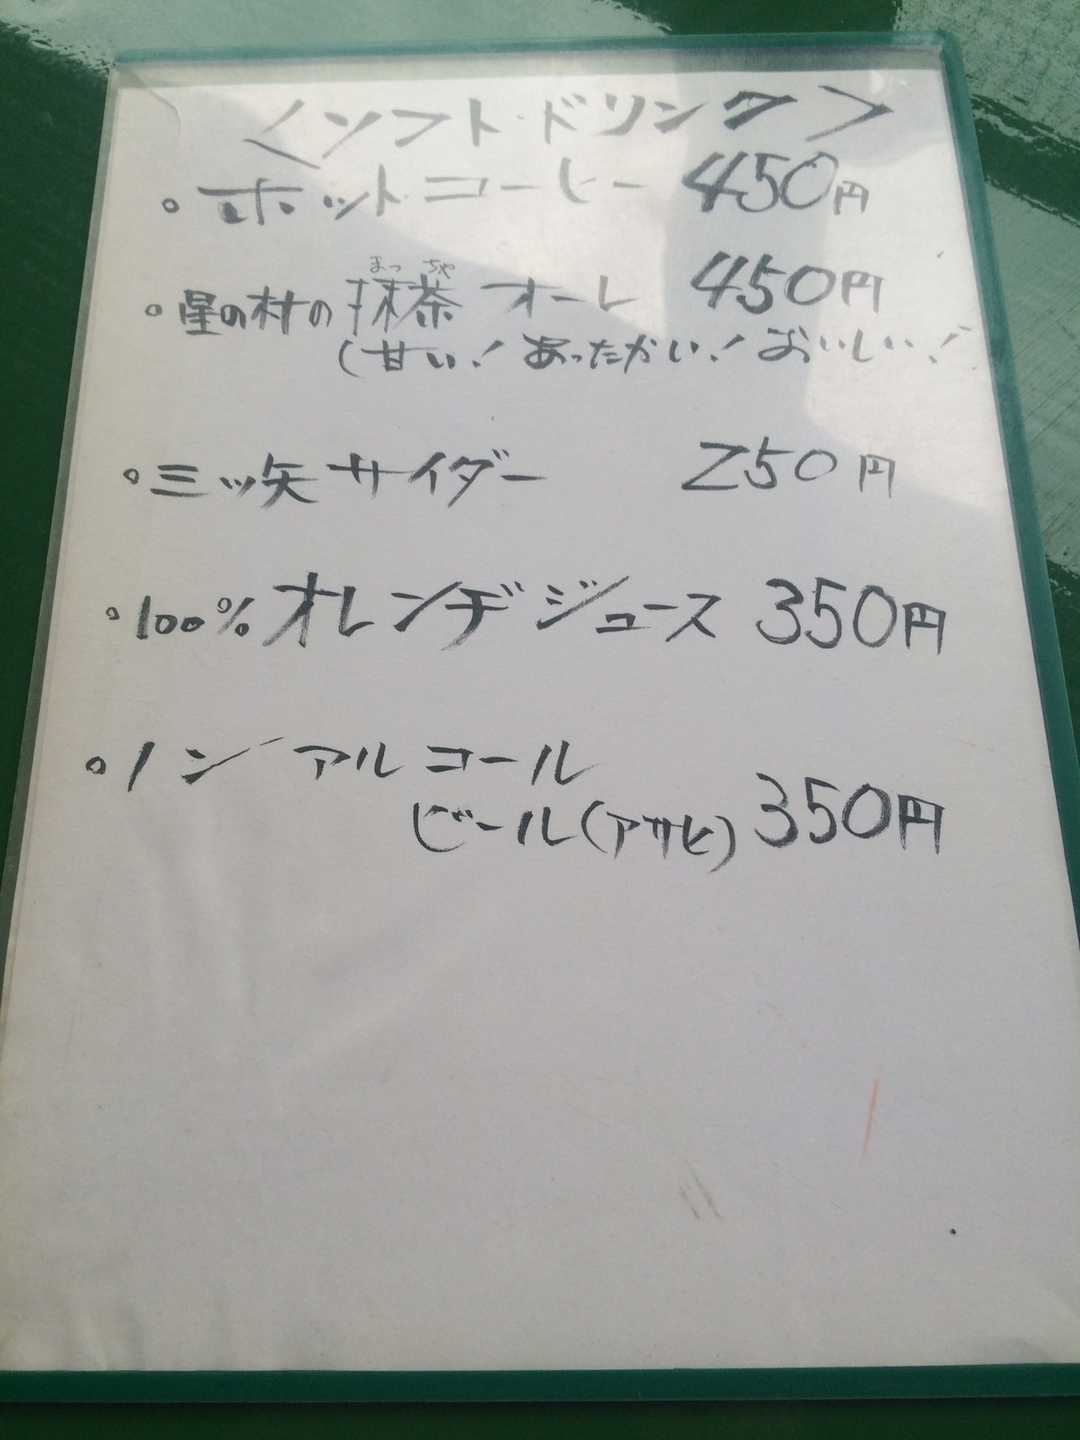 <ソフト・ドリンク>
。ホットコーヒー 450円
まっ ちゃ
。星の村の抹茶 オーレ 450円
(甘い!あったかい!おいしい!
。三ッ矢サイダー 250円
。100%オレンヂジュース 350円
。ノン アルコール
ビール(アサヒ) 350円